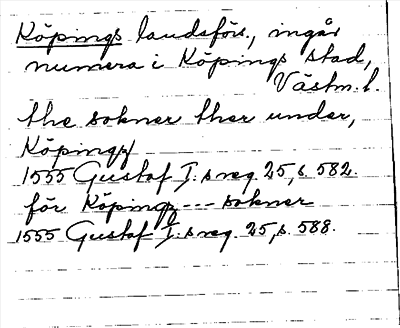 Köpings landsförs., ingår
numera i Köpings stad,
Västm. l.
the sokner ther under,
Köpingz
1555 Gustaf I:s reg. 25, s. 582.
för Köpingz --- sokner
1555 Gustaf I:s reg. 25, s. 588.